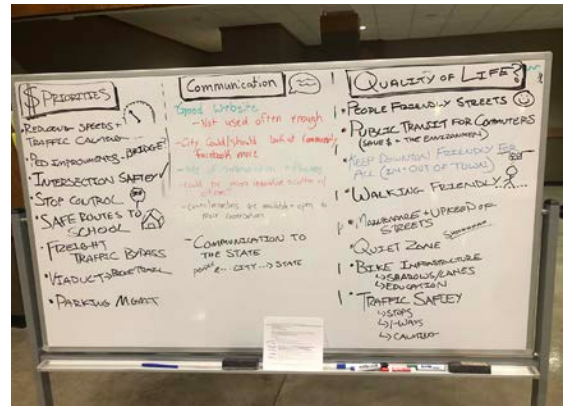 $ PRIORITIES
• REDUCING SPEEDS +
TRAFFIC CALMING
• PED IMPROVEMENTS - BRIDGE
• INTERSECTION SAFTEY
• STOP CONTROL
• SAFE ROUTES TO
SCHOOL
• FREIGHT
TRAFFIC BYPASS
• VIADUCT →
• PARKING MGMT
Communication
Good Website
- Not used often enough
- City could/should look at
Facebook more
- could be more
- COMMUNICATION TO
THE STATE
PEOPLE ... CITY ...> STATE
QUALITY OF LIFE?
• PEOPLE FRIENDLY STREETS
• PUBLIC TRANSIT FOR COMMUTERS
(SAVE $ + THE ENVIRONMENT)
• KEEP DOWNTOWN FRIENDLY FOR
ALL (IN + OUT OF TOWN)
• WALKING FRIENDLY
• MAINTENANCE + UPKEEP OF
STREETS
• QUIET ZONE
• BIKE INFRASTRUCTURE
↳ SHARROWS/LANES
↳ EDUCATION
• TRAFFIC SAFTEY
↳ STOPS
↳ 1-WAYS
↳ CALMING